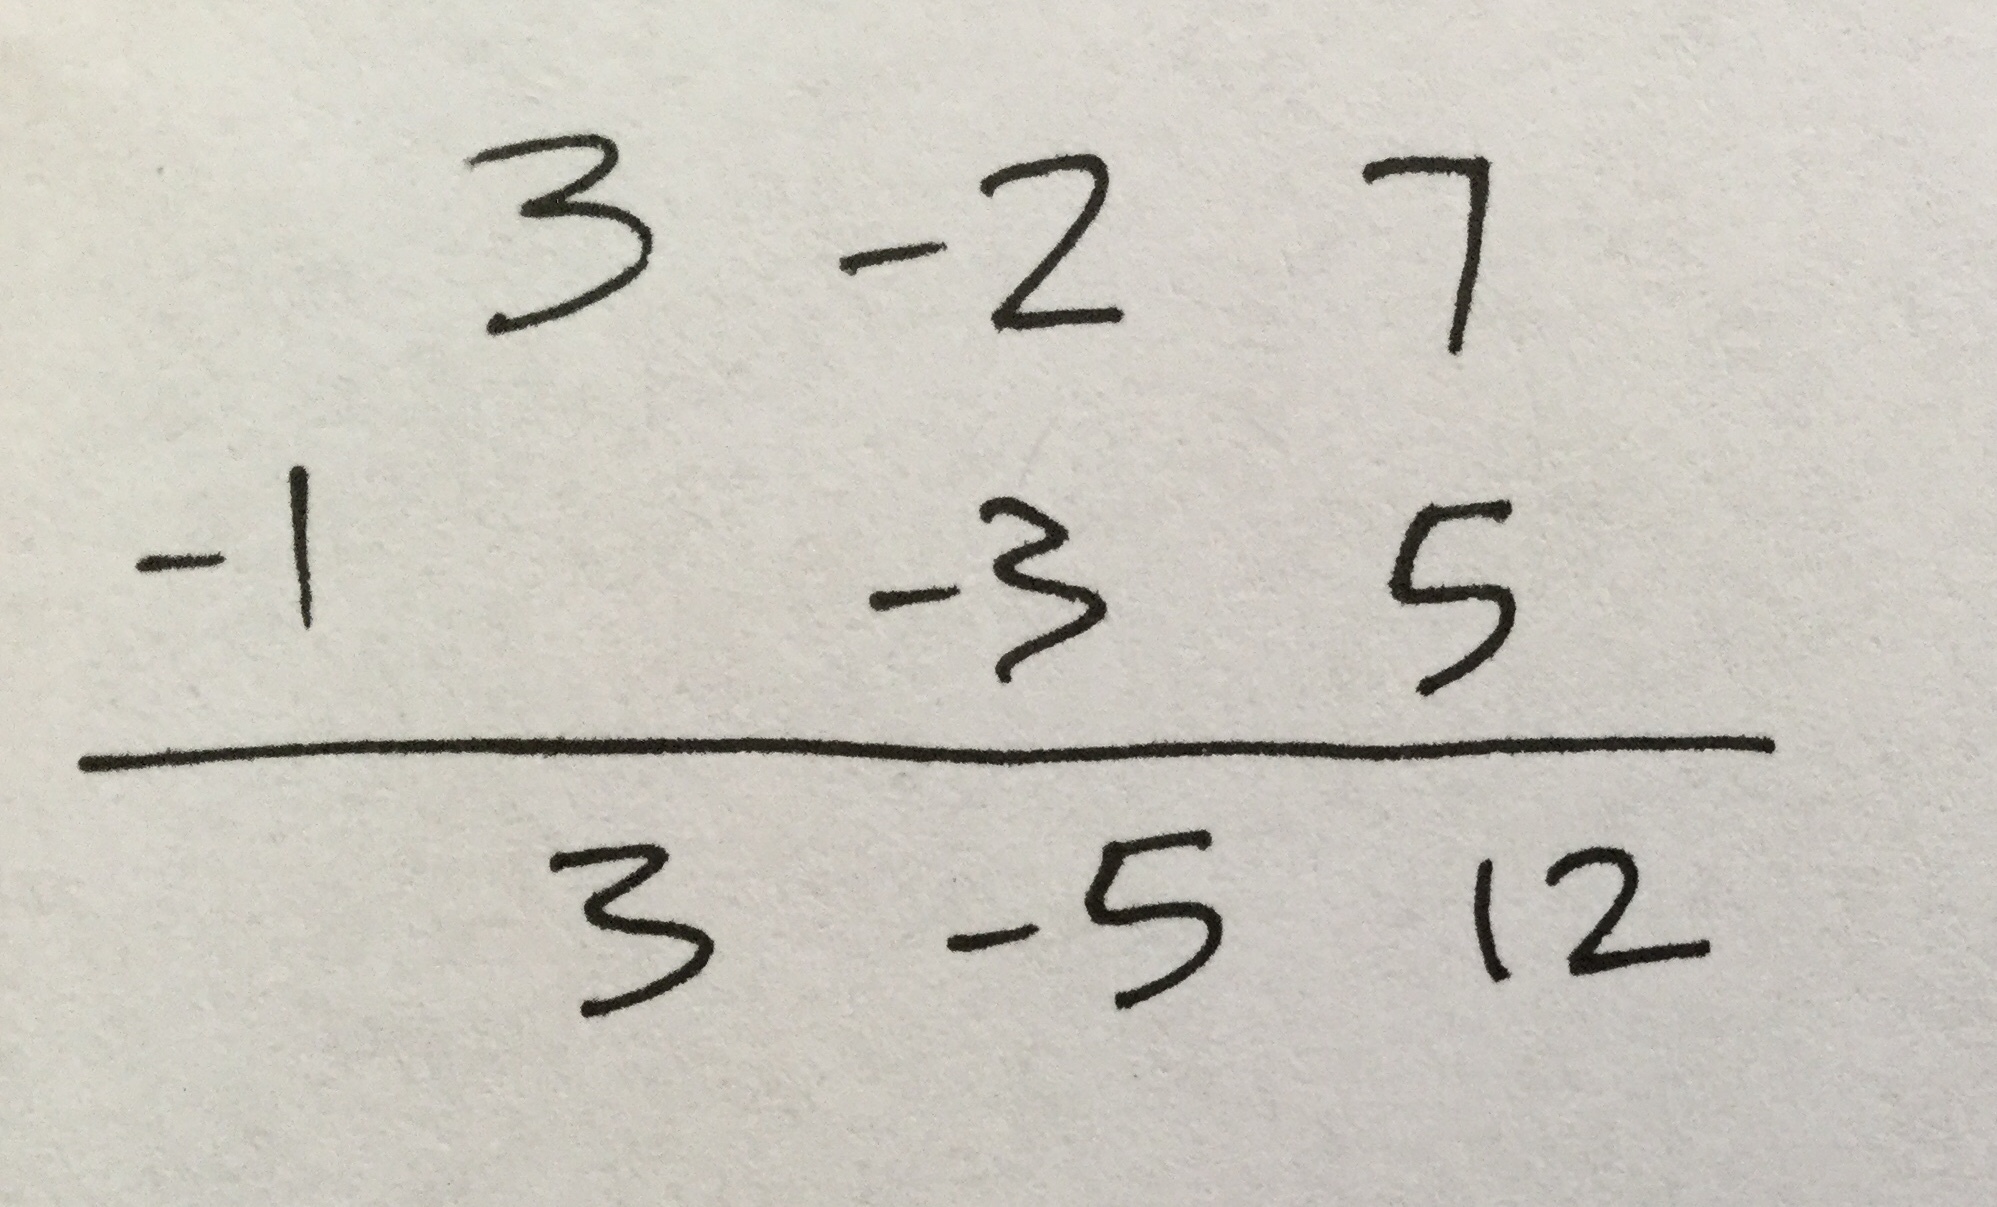 3 -2 7
-1 -3 5
3 -5 12